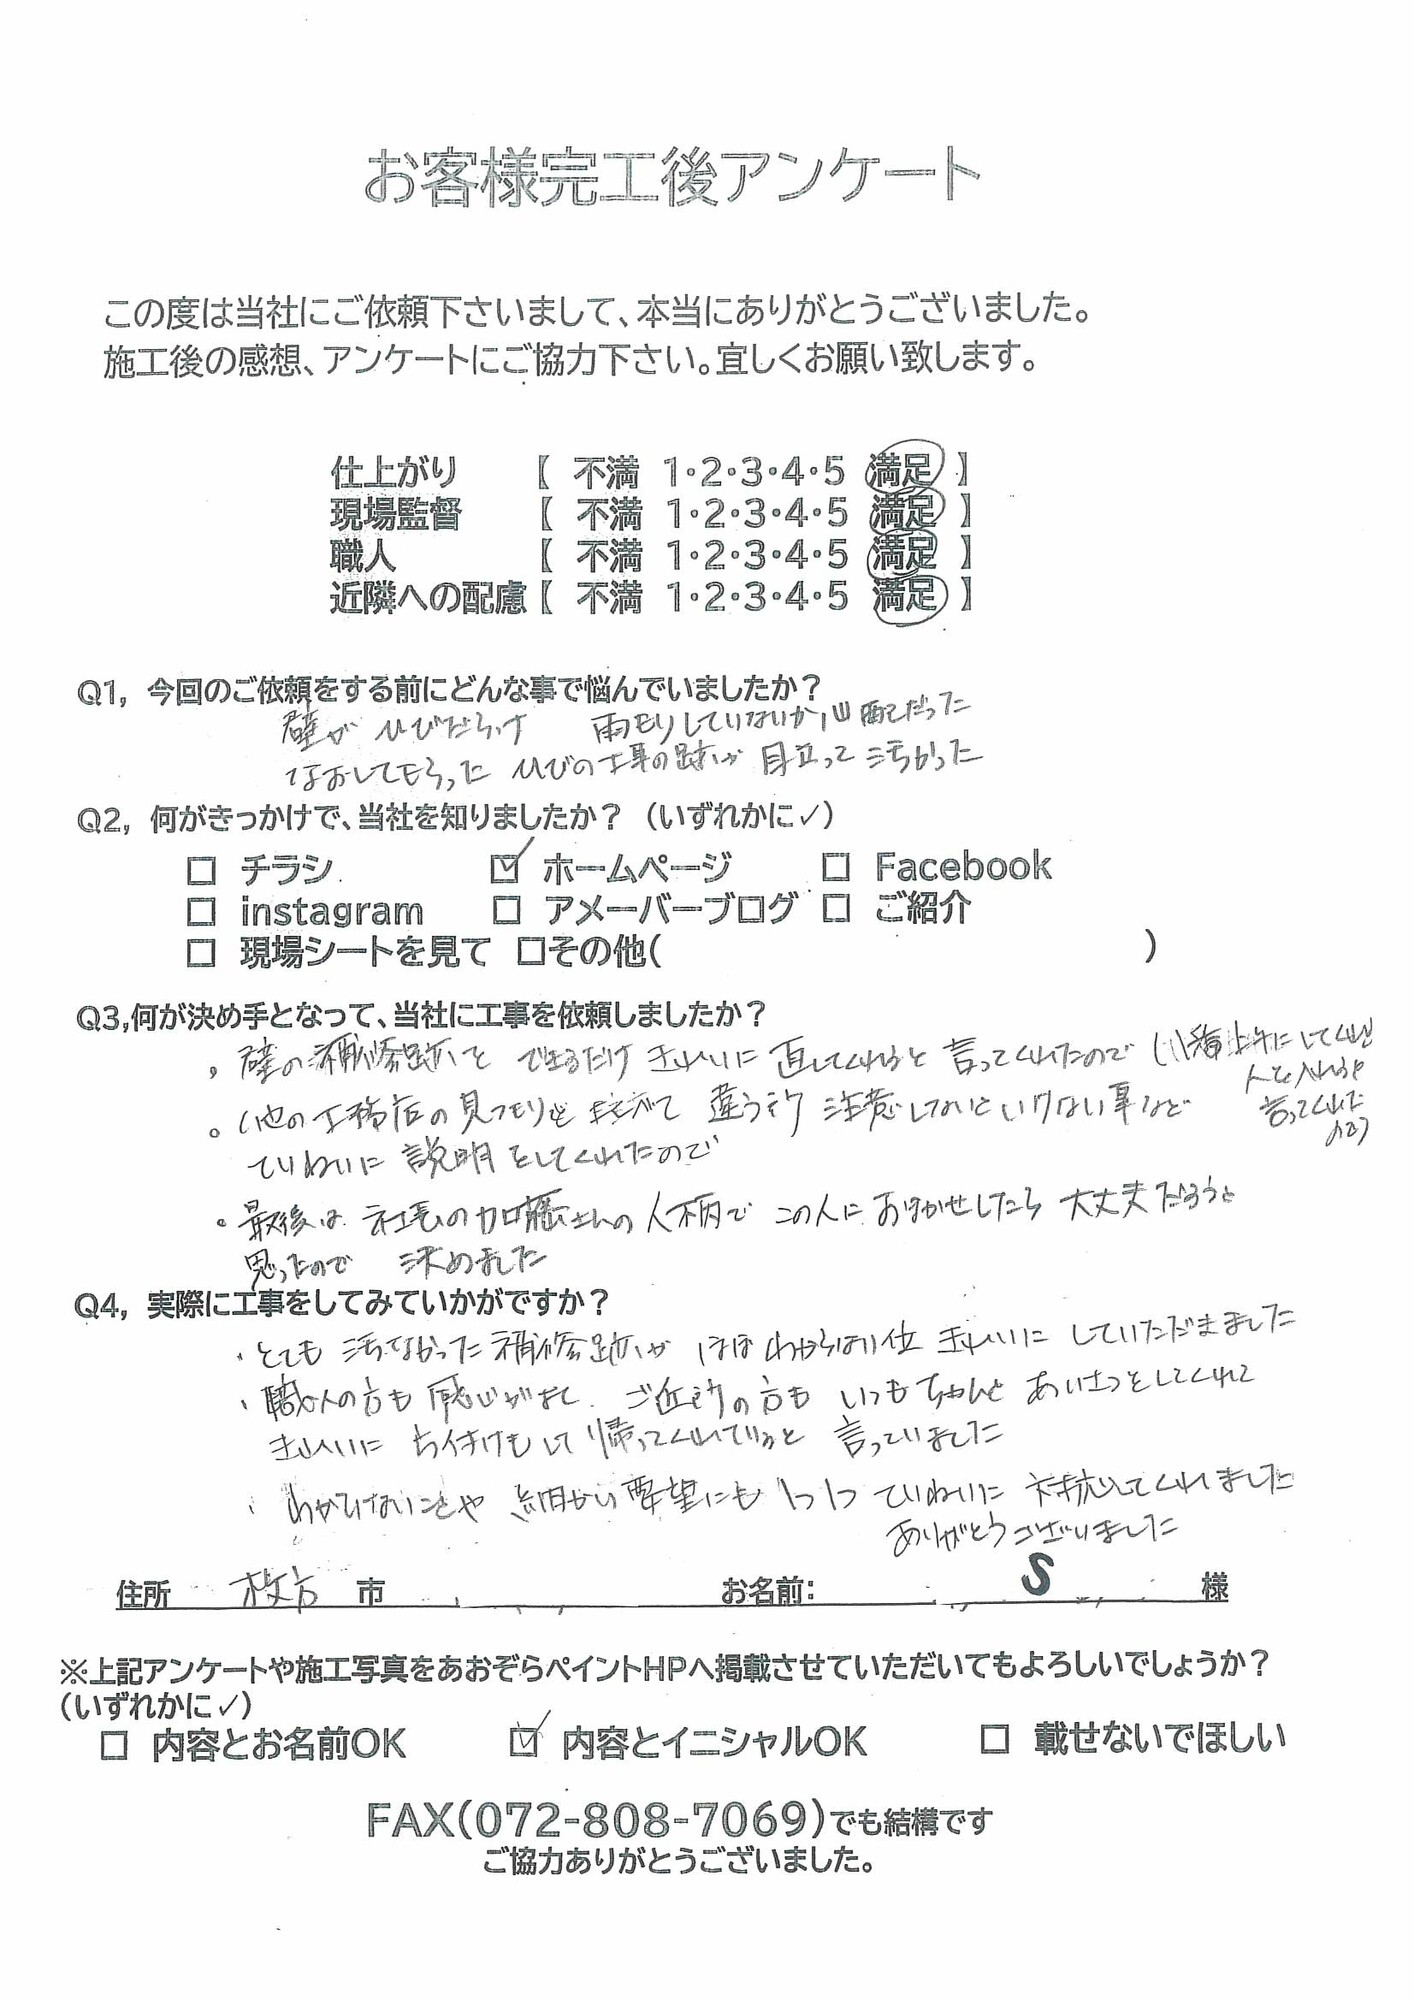 お客様完工後アンケート
この度は当社にご依頼下さいまして、本当にありがとうございました。
施工後の感想、アンケートにご協力下さい。宜しくお願い致します。
仕上がり 【 不満 1・2・3・4・5 満足 】
現場監督 【 不満 1・2・3・4・5 満足 】
職人 【 不満 1・2・3・4・5 満足 】
近隣への配慮【 不満 1・2・3・4・5 満足 】
Q1, 今回のご依頼をする前にどんな事で悩んでいましたか?
壁が ひびだらけ 雨もりしていないか心配だった
なおしてもらった ひびの工事の跡が 目立って 汚かった
Q2, 何がきっかけで、当社を知りましたか? (いずれかに✓)
□ チラシ ☑ ホームページ □ Facebook
□ instagram □ アメーバーブログ □ ご紹介
□ 現場シートを見て □その他( )
Q3,何が決め手となって、当社に工事を依頼しましたか?
・壁の補修跡を できるだけ きれいに 直してくれると 言ってくれたので (1番上手にしてくれる
人を入れると
言ってくれた
ので)
・他の工務店の見つもりと 比べて 違う所 注意しないといけない事など
ていねいに 説明をしてくれたので
・最後は 社長の加藤さんの人柄で この人に おまかせしたら 大丈夫だろうと
思ったので 決めました
Q4, 実際に工事をしてみていかがですか?
・とても 汚なかった補修跡が ほぼ わからない位 きれいに していただきました
・職人の方も 感じがよく ご近所の方も いつもちゃんと あいさつをしてくれて
きれいに 片付けもして 帰ってくれていると 言っていました
・わからないことや 細かい要望にも 1つ1つ ていねいに 対応してくれました
ありがとうございました
住所 枚方 市 お名前: S 様
※上記アンケートや施工写真をあおぞらペイントHPへ掲載させていただいてもよろしいでしょうか?
(いずれかに✓)
□ 内容とお名前OK ☑ 内容とイニシャルOK □ 載せないでほしい
FAX(072-808-7069)でも結構です
ご協力ありがとうございました。